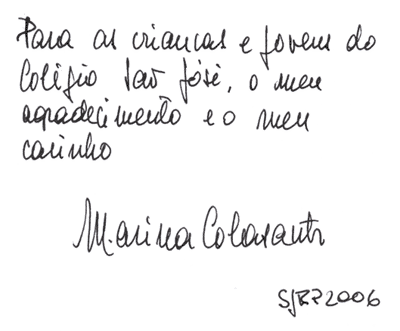 Para as crianças e jovem do
Colégio São José, o meu
agradecimento e o meu
carinho
Marina Colasanti
SJRP 2006